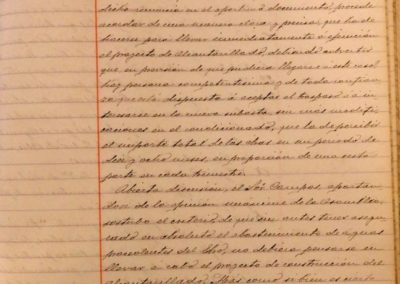 dicha renuncia en el oportuno documento, procede
acordar de una manera clara y precisa que ha de
hacerse para llevar inmediatamente a ejecución
el proyecto de Alcantarillado, debiendo advertir
que en previsión de que pudiera llegarse a este caso
hay persona competentísima y de toda confian
za que está dispuesta á aceptar el traspaso ó a in
teresarse en la nueva subasta, sin más modifi
caciones en el condicionado, que la de percibir
el importe total de las obras en un periodo de
diez y ocho meses, en proporción de una sexta
parte en cada trimestre.
Abierta discusión, el Sor. Campos apartan
dose de la opinión unánime de la Asamblea,
sostuvo el criterio de que sin antes tener asegu
rado en absoluto el abastecimiento de aguas
procedentes del no debiera pensarse en
llevar a cabo el proyecto de construcción del
alcantarillado. Mas como si bien es cierto